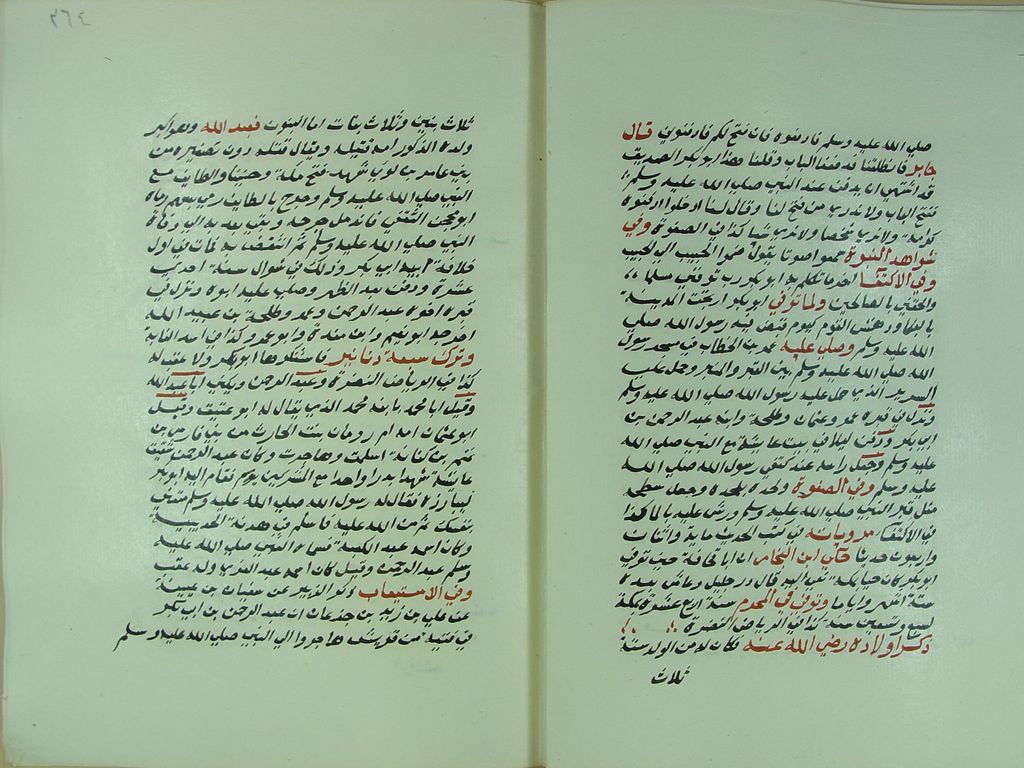 صلى الله عليه وسلم فادفنوه فان فتح لكم فادفنوني قال
جابر فانطلقنا فدققنا الباب وقلنا هذا ابو بكر الصديق
قد اشتهى ان يدفن عند النبي صلى الله عليه وسلم
ففتح الباب ولا ندري من فتح لنا وقال لنا ادخلوا ادفنوه
كرامة ولا نرى شخصا ولا نرى شيا كذا في الصفوة وفي
شواهد النبوة سمعوا صوتا يقول ضموا الحبيب الى الحبيب
وفي الاكتفا اخر ما تكلم به ابو بكر رب توفني مسلما
والحقني بالصالحين ولما توفي ابو بكر ارتجت المدينة
بالبكاء ودهش القوم كيوم قبض فيه رسول الله صلى
الله عليه وسلم وصلى عليه عمر بن الخطاب في مسجد رسول
الله صلى الله عليه وسلم بين القبر والمنبر وحمل على
السرير الذي حمل عليه رسول الله صلى الله عليه وسلم
ونزل في قبره عمر وعثمان وطلحة وابنه عبد الرحمن بن
ابي بكر ودفن ليلا في بيت عايشة مع النبي صلى الله
عليه وسلم وجعل راسه عند كتفي رسول الله صلى الله
عليه وسلم وفي الصفوة ولحده بلحده وجعل سطح
مثل قبر النبي صلى الله عليه وسلم ورش عليه بالماء كذا
في الاكتفا مروياته في كتب الحديث ماية واثنان
واربعون حديثا ان ابا قحافة حين توفي
ابو بكر كان حيا بمكة نعى اليه قال رزء جليل وعاش بعده
ستة اشهر واياما وتوفي في المحرم سنة اربع عشرة بمكة
وتسعين سنة كذا في الرياض النضرة
ذكر اولاده رضي الله عنه وكان له من الولد ستة
ثلاث
٢٦٤
ثلاث بنين وثلاث بنات اما البنون فعبد الله وهو اكبر
ولده الذكور امه قتيلة ويقال قتلة دون تصغير من
بني عامر بن لؤي شهد فتح مكة وحنينا والطايف مع
النبي صلى الله عليه وسلم وجرح بالطايف رمي بسهم رماه
ابو محجن الثقفي فاندمل جرحه وبقي بعده الى وفاة
النبي صلى الله عليه وسلم ثم انتقض به فمات في اول
خلافة ابيه ابي بكر وذلك في شوال سنة احدى
عشرة ودفن بعد الظهر وصلى عليه ابوه ونزل في
قبره اخوه عبد الرحمن وعمر وطلحة بن عبيد الله
اخرجه ابو نعيم وابن مندة وابو عمر وكذا في اسد الغابة
وترك سبعة دنانير فاستكثرها ابو بكر ولا عقب له
كذا في الرياض النضرة وعبد الرحمن ويكنى ابا عبد الله
وقيل ابا محمد بابنه محمد الذي يقال له ابو عتيق وقيل
ابو عثمان امه ام رومان بنت الحارث من بني فراس بن
غنم بن كنانة اسلمت وهاجرت وكان عبد الرحمن شقيق
عايشة شهد بدرا واحدا مع المشركين فقام اليه ابو بكر
ليبارزه فقال له رسول الله صلى الله عليه وسلم متعني
بنفسك ثم من الله عليه فاسلم في هدنة الحديبية
وكان اسمه عبد الكعبة فسماه النبي صلى الله عليه
وسلم عبد الرحمن وقيل كان اسمه عبد العزى وله عقب
وفي الاستيعاب ذكر الزبير عن سفيان بن عيينة
عن علي بن زيد بن جدعان ان عبد الرحمن بن ابي بكر
في فتية من قريش هاجروا الى النبي صلى الله عليه وسلم